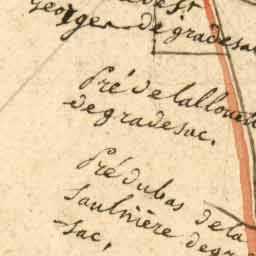 Georges degradesac
Pré de lalloue
degradesac.
Pré du bas de la
Saulnière degr
sac,